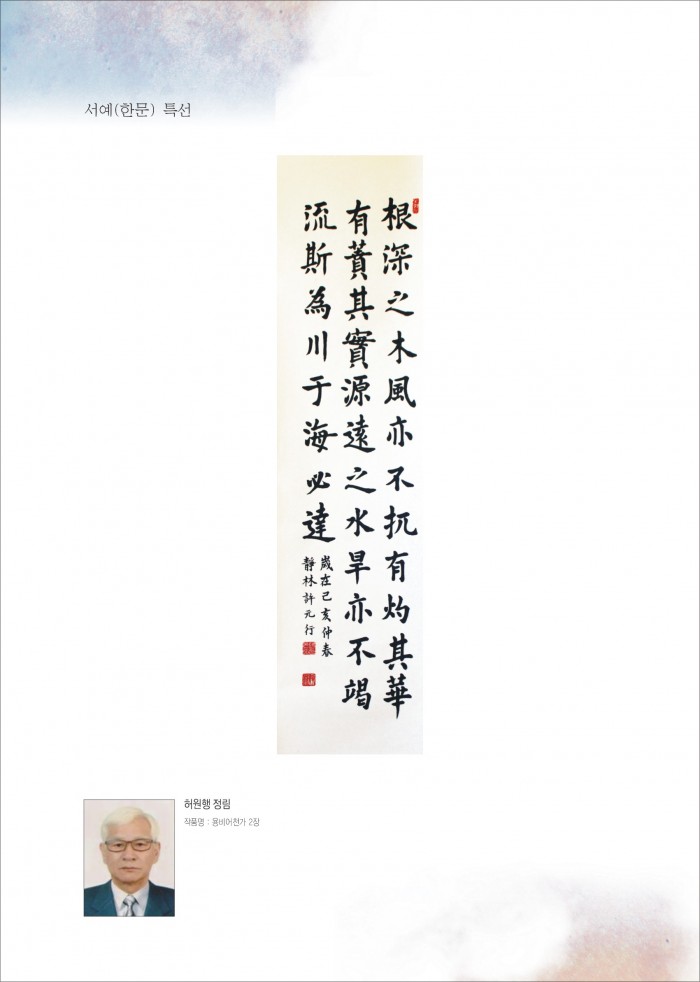 서예(한문) 특선
根深之木風亦不扤有灼其華
有蕡其實源遠之水旱亦不竭
流斯為川于海必達
歲在己亥仲春
靜林許元行
허원행 정림
작품명 : 용비어천가 2장